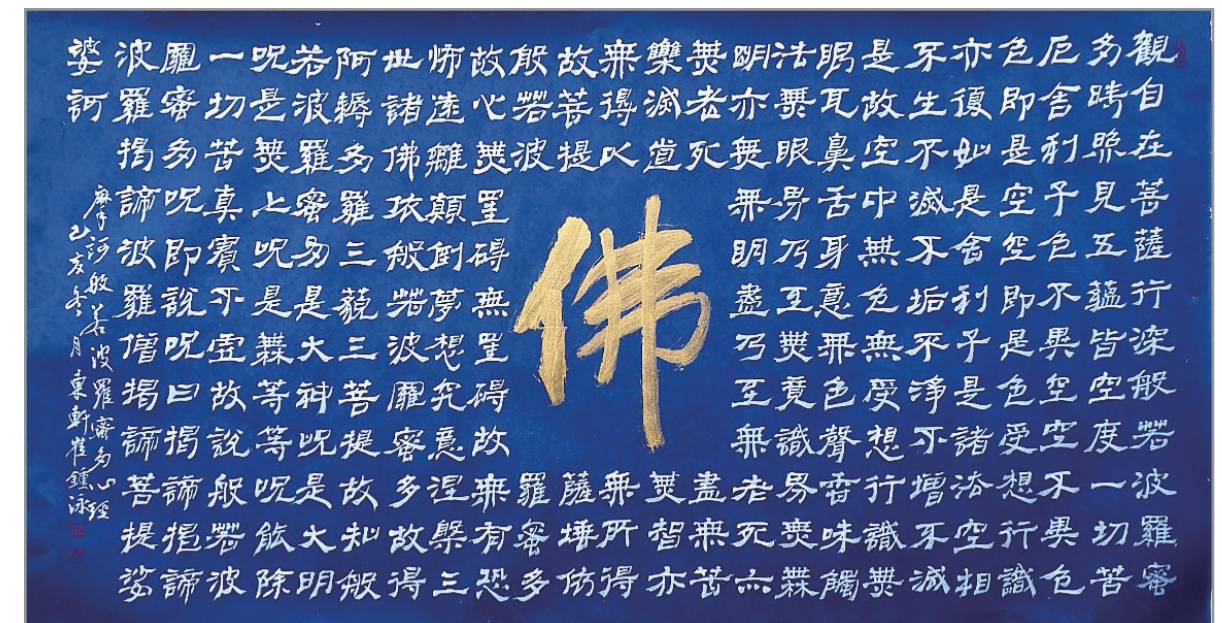 觀自在菩薩行深般若波羅蜜
多時照見五蘊皆空度一切苦
厄舍利子色不異空空不異色
色即是空空即是色受想行識
亦復如是舍利子是諸法空相
不生不滅不垢不淨不增不減
是故空中無色無受想行識無
眼耳鼻舌身意無色聲香味觸
法無眼界乃至無意識界無無
明亦無無明盡乃至無老死亦
無老死盡無苦
集滅道無智亦
無得以無所得
故菩提薩埵依
般若波羅蜜多
佛
故心無罣礙無罣礙故無有恐
怖遠離顛倒夢想究竟涅槃三
世諸佛依般若波羅蜜多故得
阿耨多羅三藐三菩提故知般
若波羅蜜多是大神呪是大明
呪是無上呪是無等等呪能除
一切苦真實不虛故說般若波
羅蜜多呪即說呪曰揭諦揭諦
波羅揭諦波羅僧揭諦菩提娑
婆訶
摩訶般若波羅蜜多心經
己亥冬月東軒崔鍾泳